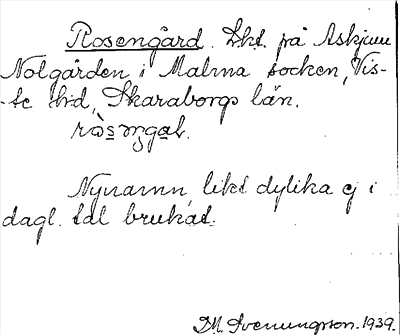 Rosengård. Lht. på Askjum
Nolgården i Malma socken, Vis-
-te hd, Skaraborgs län.

Nynamn, likt dylika ej i
dagl. tal brukat.
M. Svenungsson. 1939.